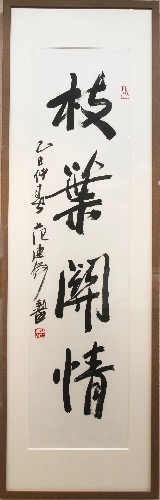 枝葉關情
乙巳仲春 范建